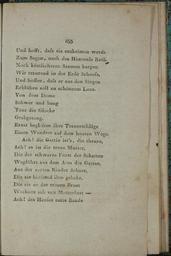 Und hofft, daſs sie entkeimen werde
Zum Segen, nach des Himmels Rath.
Noch köstlicheren Saamen bergen
Wir trauernd in der Erde Schooſs,
Und hoffen, daſs er aus den Särgen
Erblühen soll zu schönerm Loos.
Von dem Dome
Schwer und bang
Tönt die Glocke
Grabgesang.
Ernst begleiten ihre Trauerschläge
Einen Wandrer auf dem letzten Wege.
Ach! die Gattin ist's, die theure,
Ach! es ist die treue Mutter,
Die der schwarze Fürst der Schatten
Wegführt aus dem Arm des Gatten,
Aus der zarten Kinder Schaar,
Die sie blühend ihm gebahr,
Die sie an der treuen Brust
Wachsen sah mit Mutterlust —
Ach! des Hauses zarte Bande